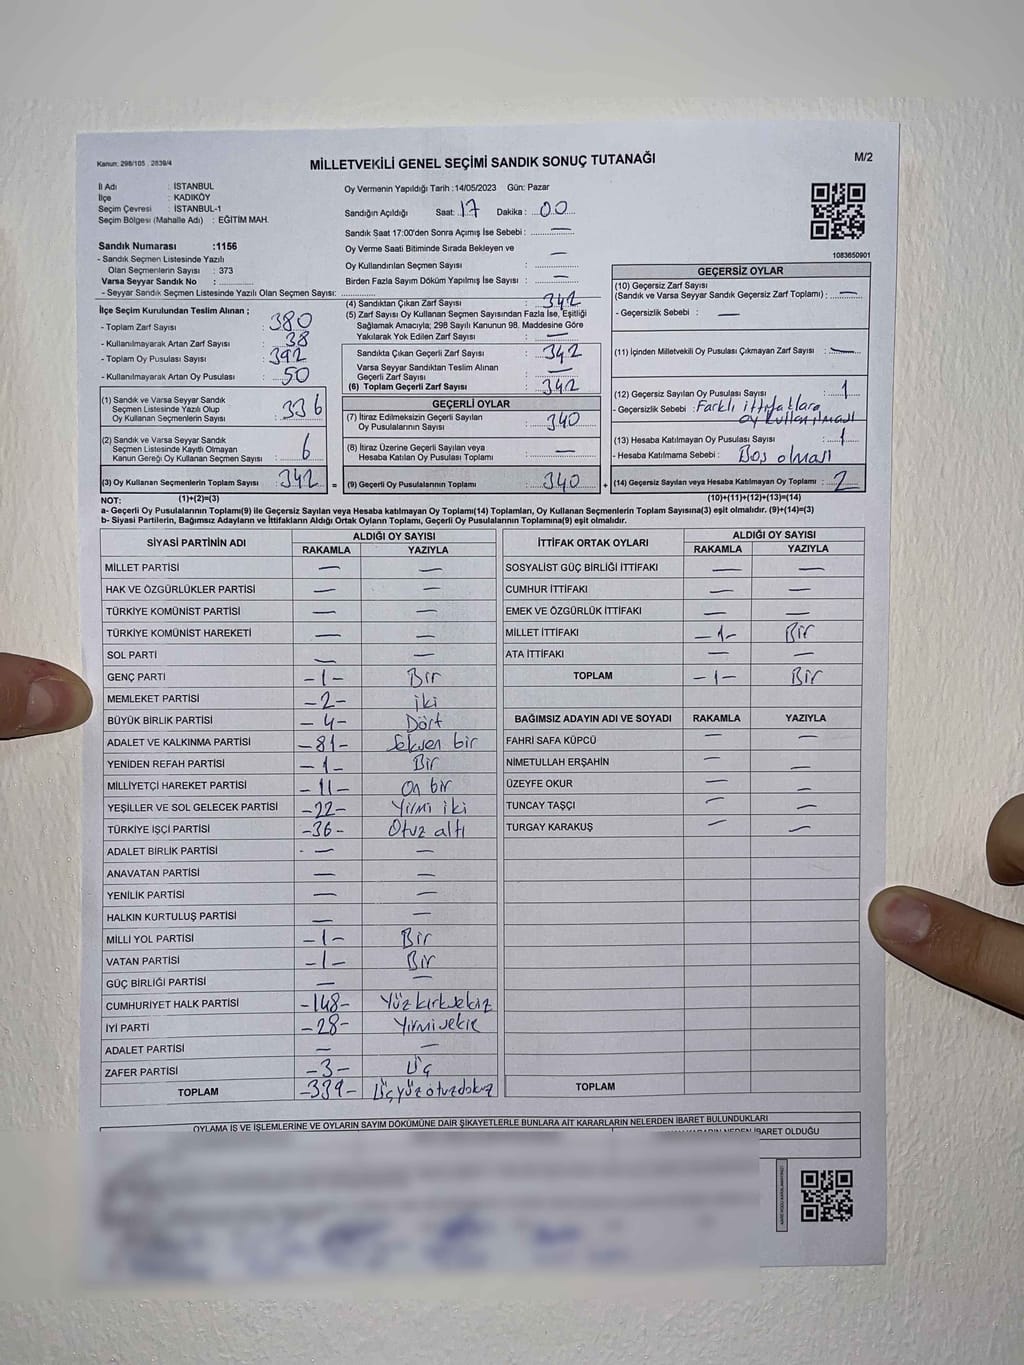 Kanun: 298/105 , 2839/4
MİLLETVEKİLİ GENEL SEÇİMİ SANDIK SONUÇ TUTANAĞI
M/2
İl Adı : İSTANBUL
İlçe : KADIKÖY
Seçim Çevresi : İSTANBUL-1
Seçim Bölgesi (Mahalle Adı) : EĞİTİM MAH.
Sandık Numarası :1156
- Sandık Seçmen Listesinde Yazılı
Olan Seçmenlerin Sayısı : 373
Varsa Seyyar Sandık No :
- Seyyar Sandık Seçmen Listesinde Yazılı Olan Seçmen Sayısı:
İlçe Seçim Kurulundan Teslim Alınan ;
- Toplam Zarf Sayısı : 380
- Kullanılmayarak Artan Zarf Sayısı : 38
- Toplam Oy Pusulası Sayısı : 392
- Kullanılmayarak Artan Oy Pusulası : 50
(1) Sandık ve Varsa Seyyar Sandık
Seçmen Listesinde Yazılı Olup
Oy Kullanan Seçmenlerin Sayısı : 336
(2) Sandık ve Varsa Seyyar Sandık
Seçmen Listesinde Kayıtlı Olmayan
Kanun Gereği Oy Kullanan Seçmen Sayısı : 6
(3) Oy Kullanan Seçmenlerin Toplam Sayısı : 342 =
Oy Vermenin Yapıldığı Tarih :14/05/2023 Gün: Pazar
Sandığın Açıldığı Saat: 17 Dakika : 00
Sandık Saat 17:00'den Sonra Açımış İse Sebebi : —
Oy Verme Saati Bitiminde Sırada Bekleyen ve
Oy Kullandırılan Seçmen Sayısı : —
Birden Fazla Sayım Döküm Yapılmış İse Sayısı : —
(4) Sandıktan Çıkan Zarf Sayısı : 342
(5) Zarf Sayısı Oy Kullanan Seçmen Sayısından Fazla İse, Eşitliği
Sağlamak Amacıyla; 298 Sayılı Kanunun 98. Maddesine Göre
Yakılarak Yok Edilen Zarf Sayısı : —
Sandıkta Çıkan Geçerli Zarf Sayısı : 342
Varsa Seyyar Sandıktan Teslim Alınan
Geçerli Zarf Sayısı : —
(6) Toplam Geçerli Zarf Sayısı : 342
GEÇERLİ OYLAR
(7) İtiraz Edilmeksizin Geçerli Sayılan
Oy Pusulalarının Sayısı : 340
(8) İtiraz Üzerine Geçerli Sayılan veya
Hesaba Katılan Oy Pusulası Toplamı : —
(9) Geçerli Oy Pusulalarının Toplamı : 340 +
1083650901
GEÇERSİZ OYLAR
(10) Geçersiz Zarf Sayısı
(Sandık ve Varsa Seyyar Sandık Geçersiz Zarf Toplamı) : —
- Geçersizlik Sebebi : —
(11) İçinden Milletvekili Oy Pusulası Çıkmayan Zarf Sayısı : —
(12) Geçersiz Sayılan Oy Pusulası Sayısı : 1
- Geçersizlik Sebebi : Farklı ittifaklara
oy kullanılması
(13) Hesaba Katılmayan Oy Pusulası Sayısı : 1
- Hesaba Katılmama Sebebi : Boş olması
(14) Geçersiz Sayılan veya Hesaba Katılmayan Oy Toplamı : 2
NOT: (1)+(2)=(3) (10)+(11)+(12)+(13)=(14)
a- Geçerli Oy Pusulalarının Toplamı(9) ile Geçersiz Sayılan veya Hesaba katılmayan Oy Toplamı(14) Toplamları, Oy Kullanan Seçmenlerin Toplam Sayısına(3) eşit olmalıdır. (9)+(14)=(3)
b- Siyasi Partilerin, Bağımsız Adayların ve İttifakların Aldığı Ortak Oyların Toplamı, Geçerli Oy Pusulalarının Toplamına(9) eşit olmalıdır.
SİYASİ PARTİNİN ADI ALDIĞI OY SAYISI
RAKAMLA YAZIYLA
MİLLET PARTİSİ — —
HAK VE ÖZGÜRLÜKLER PARTİSİ — —
TÜRKİYE KOMÜNİST PARTİSİ — —
TÜRKİYE KOMÜNİST HAREKETİ — —
SOL PARTİ — —
GENÇ PARTİ -1- Bir
MEMLEKET PARTİSİ -2- iki
BÜYÜK BİRLİK PARTİSİ -4- Dört
ADALET VE KALKINMA PARTİSİ -81- Seksen bir
YENİDEN REFAH PARTİSİ -1- Bir
MİLLİYETÇİ HAREKET PARTİSİ -11- On bir
YEŞİLLER VE SOL GELECEK PARTİSİ -22- Yirmi iki
TÜRKİYE İŞÇİ PARTİSİ -36- Otuz altı
ADALET BİRLİK PARTİSİ — —
ANAVATAN PARTİSİ — —
YENİLİK PARTİSİ — —
HALKIN KURTULUŞ PARTİSİ — —
MİLLİ YOL PARTİSİ -1- Bir
VATAN PARTİSİ -1- Bir
GÜÇ BİRLİĞİ PARTİSİ — —
CUMHURİYET HALK PARTİSİ -148- Yüz kırk sekiz
İYİ PARTİ -28- Yirmi sekiz
ADALET PARTİSİ — —
ZAFER PARTİSİ -3- Üç
TOPLAM -339- Üçyüz otuzdokuz
İTTİFAK ORTAK OYLARI ALDIĞI OY SAYISI
RAKAMLA YAZIYLA
SOSYALİST GÜÇ BİRLİĞİ İTTİFAKI — —
CUMHUR İTTİFAKI — —
EMEK VE ÖZGÜRLÜK İTTİFAKI — —
MİLLET İTTİFAKI -1- Bir
ATA İTTİFAKI — —
TOPLAM -1- Bir
BAĞIMSIZ ADAYIN ADI VE SOYADI RAKAMLA YAZIYLA
FAHRİ SAFA KÜPCÜ — —
NİMETULLAH ERŞAHİN — —
ÜZEYFE OKUR — —
TUNCAY TAŞÇI — —
TURGAY KARAKUŞ — —
TOPLAM
OYLAMA İŞ VE İŞLEMLERİNE VE OYLARIN SAYIM DÖKÜMÜNE DAİR ŞİKAYETLERLE BUNLARA AİT KARARLARIN NELERDEN İBARET BULUNDUKLARI
İBARET OLDUĞU